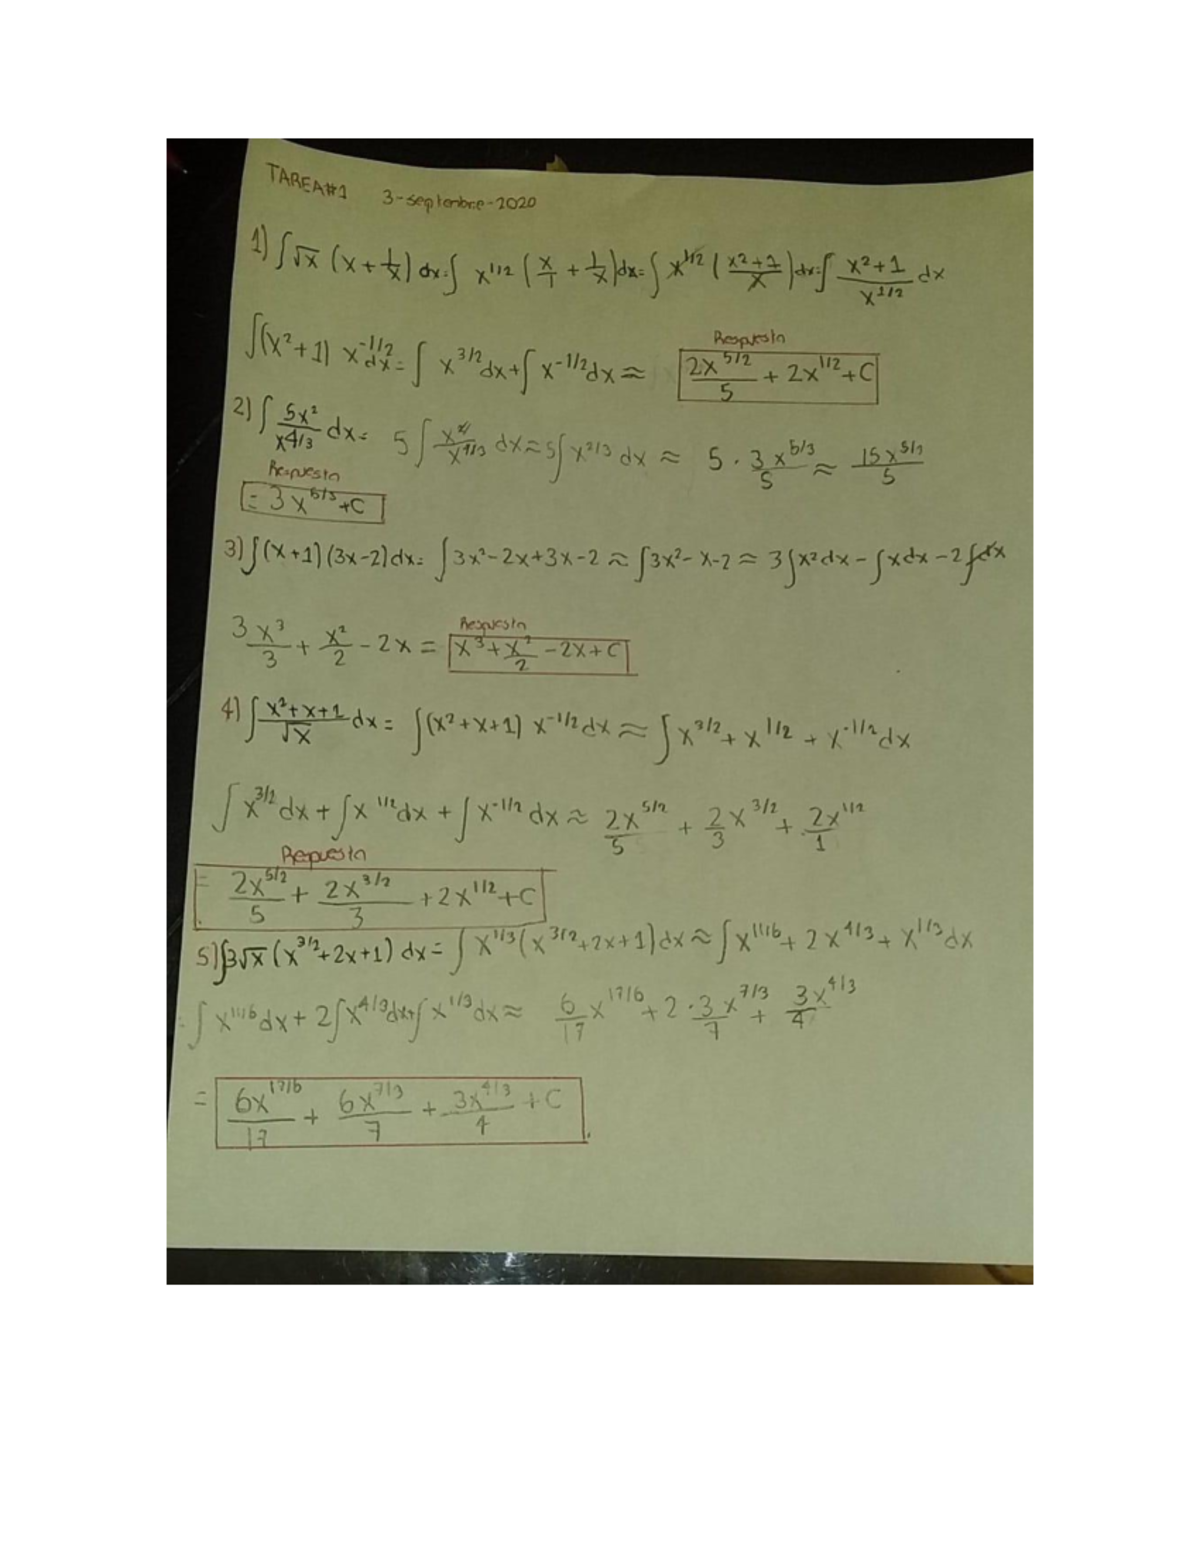 TAREA#1 3-septiembre-2020
1) ∫√x (x + 1/x) dx = ∫ x^1/2 (x/1 + 1/x) dx = ∫ x^1/2 ((x²+1)/x) dx = ∫ (x²+1)/x^1/2 dx
∫(x²+1) x^-1/2 dx = ∫ x^3/2 dx + ∫ x^-1/2 dx ≈
Respuesta
2x^5/2 / 5 + 2x^1/2 + C
2) ∫ 5x²/x^4/3 dx = 5 ∫ x²/x^4/3 dx ≈ 5∫ x^2/3 dx ≈ 5 · 3x^5/3 / 5 ≈ 15x^5/3 / 5
Respuesta
= 3x^5/3 + C
3) ∫(x+1)(3x-2) dx = ∫ 3x² - 2x + 3x - 2 ≈ ∫ 3x² - x - 2 ≈ 3∫x² dx - ∫x dx - 2∫dx
3x³/3 + x²/2 - 2x =
Respuesta
x³ + x²/2 - 2x + C
4) ∫ (x²+x+1)/√x dx = ∫(x²+x+1) x^-1/2 dx ≈ ∫ x^3/2 + x^1/2 + x^-1/2 dx
∫ x^3/2 dx + ∫ x^1/2 dx + ∫ x^-1/2 dx ≈ 2x^5/2 / 5 + 2/3 x^3/2 + 2x^1/2 / 1
Respuesta
= 2x^5/2 / 5 + 2x^3/2 / 3 + 2x^1/2 + C
5) ∫3√x (x^3/2 + 2x + 1) dx = ∫ x^1/3 (x^3/2 + 2x + 1) dx ≈ ∫ x^11/6 + 2x^4/3 + x^1/3 dx
∫ x^11/6 dx + 2∫ x^4/3 dx + ∫ x^1/3 dx ≈ 6/17 x^17/6 + 2 · 3/7 x^7/3 + 3x^4/3 / 4
= 6x^17/6 / 17 + 6x^7/3 / 7 + 3x^4/3 / 4 + C